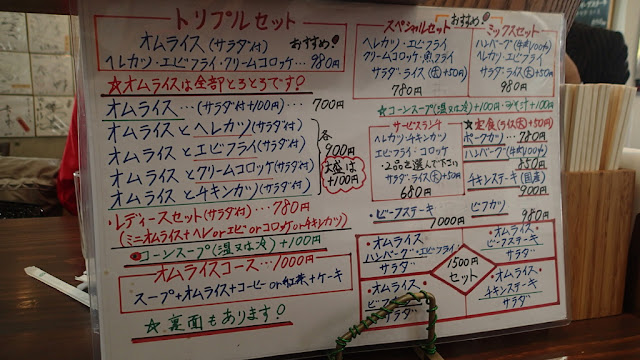 トリプルセット
オムライス(サラダ付) おすすめ!
ヘレカツ・エビフライ・クリームコロッケ… 980円
☆オムライスは全部とろとろです!
オムライス…(サラダ付+100円)… 700円
オムライスとヘレカツ(サラダ付)
オムライスとエビフライ(サラダ付)
オムライスとクリームコロッケ(サラダ付)
オムライスとチキンカツ(サラダ付)
各
900円
大盛は
+100円
・レディースセット(サラダ付)…780円
(ミニオムライス+ヘレorエビorコロッケorチキンカツ)
コーンスープ(温又は冷)+100円
オムライスコース…1000円
スープ+オムライス+コーヒーor紅茶+ケーキ
☆裏面もあります!
スペシャルセット おすすめ!
ヘレカツ・エビフライ
クリームコロッケ・魚フライ
サラダ・ライス(大)+50円
780円
ミックスセット
ハンバーグ(牛肉100%)
ヘレカツ・エビフライ
サラダ・ライス(大)+50円
980円
☆コーンスープ(温又は冷)+100円・みそ汁+100円
サービスランチ
ヘレカツ・チキンカツ
エビフライ・コロッケ
・2品を選んで下さい
サラダ・ライス(大)+50円
680円
☆定食(ライス(大)+50円)
ポークカツ… 780円
ハンバーグ(牛肉100%)
850円
チキンステーキ(国産)
900円
・ビーフステーキ
1000円
・ビフカツ
980円
・オムライス
ハンバーグ・エビフライ
サラダ
・オムライス
ビーフステーキ
サラダ
1500円
セット
・オムライス
サラダ
・オムライス
チキンステーキ
サラダ